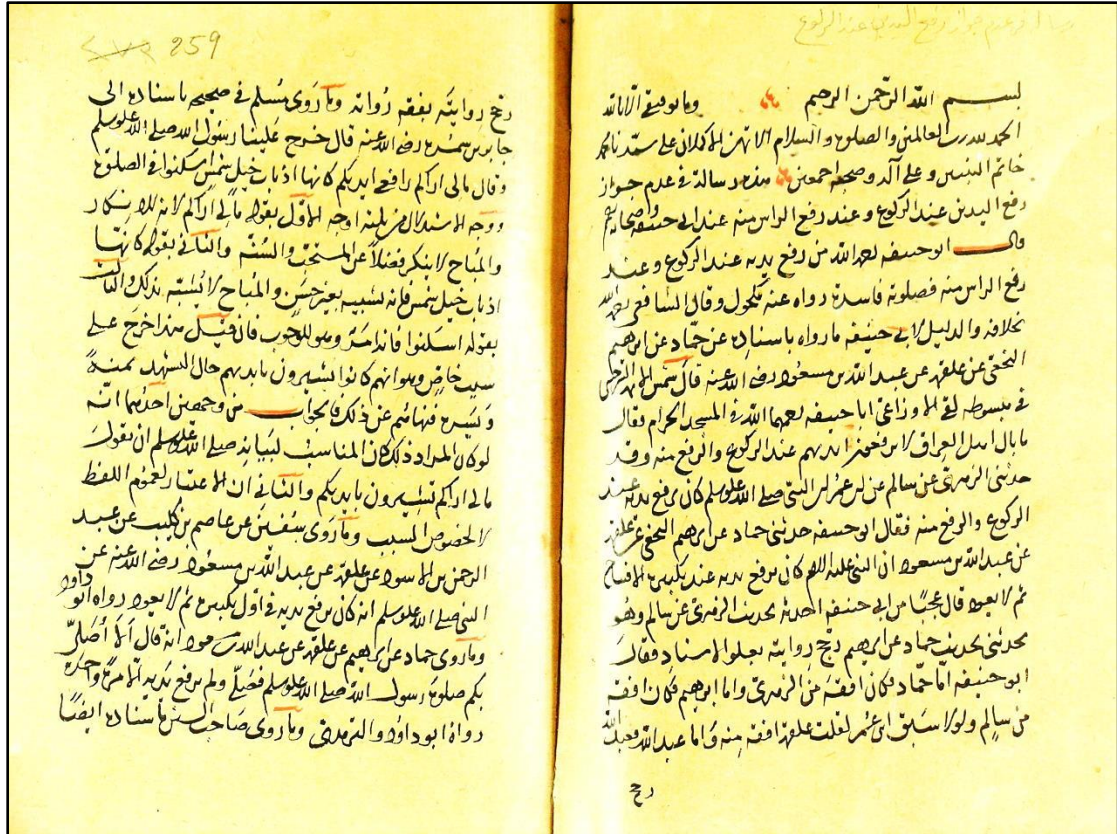 رسالة في عدم جواز رفع اليدين عند الركوع
بسم الله الرحمن الرحيم وما توفيقي الا بالله
الحمد لله رب العالمين والصلوة والسلام الاتمان الاكملان على سيدنا محمد
خاتم النبيين وعلى آله وصحبه اجمعين هذه رسالة في عدم جواز
رفع اليدين عند الركوع وعند رفع الراس منه عند ابي حنيفة واصحابه
قال ابو حنيفة رحمه الله من رفع يديه عند الركوع وعند
رفع الراس منه فصلوته فاسدة رواه عنه مكحول وقال الشافعي رحمه الله
بخلافه والدليل لابي حنيفة ما رواه باسناده عن حماد عن ابرهيم
النخعي عن علقمة عن عبد الله بن مسعود رضي الله عنه قال شمس الائمة السرخسي
في مبسوطه لقي الاوزاعي ابا حنيفة رحمهما الله في المسجد الحرام فقال
ما بال اهل العراق لا يرفعون ايديهم عند الركوع والرفع منه وقد
حدثني الزهري عن سالم عن ابن عمر ان النبي صلى الله عليه وسلم كان يرفع يديه عند
الركوع والرفع منه فقال ابو حنيفة حدثني حماد عن ابرهيم النخعي عن علقمة
عن عبد الله بن مسعود ان النبي عليه السلام كان يرفع يديه عند تكبيرة الافتتاح
ثم لا يعود قال عجبًا من ابي حنيفة احدثه بحديث الزهري عن سالم وهو
يحدثني بحديث حماد عن ابرهيم رجح روايته بعلو الاسناد فقال
ابو حنيفة اما حماد فكان افقه من الزهري واما ابرهيم فكان افقه
من سالم ولولا سبق ابن عمر لقلت علقمة افقه منه واما عبد الله فعبد الله
رجح
259
رجح روايته بفقه رواته وما روى مسلم في صحيحه باسناده الى
جابر بن سمرة رضي الله عنه قال خرج علينا رسول الله صلى الله عليه وسلم
وقال مالي اراكم رافعي ايديكم كانها اذناب خيل شمس اسكنوا في الصلوة
ووجه الاستدلال من ثلثة اوجه الاول بقوله مالي اراكم لانه للانكار
والمباح لا ينكر فضلاً عن المستحب والسنة والثاني بقوله كانها
اذناب خيل شمس فانه تشبيه بغير حسن والمباح لا يُشبّه بذلك والثالث
بقوله اسكنوا فانه امر وهو للوجوب فان قيل هذا خرج على
سبب خاص وهو انهم كانوا يشيرون بايديهم حال التشهد يمنةً
ويسرة فنهاهم عن ذلك فالجواب من وجهين احدهما انّه
لو كان المراد ذلك كان المناسب لبيانه صلى الله عليه وسلم ان يقول
مالي اراكم تشيرون بايديكم والثاني ان الاعتبار لعموم اللفظ
لا لخصوص السبب وما روى سفين عن عاصم بن كليب عن عبد
الرحمن بن الاسود عن علقمة عن عبد الله بن مسعود رضي الله عنه عن
النبي صلى الله عليه وسلم انه كان يرفع يديه في اول تكبيرة ثم لا يعود رواه ابو داود
وما روى حماد عن ابرهيم عن علقمة عن عبد الله بن مسعود انه قال الا اُصلّي
بكم صلوة رسول الله صلى الله عليه وسلم فصلّى ولم يرفع يديه الا مرة واحدة
رواه ابو داود والترمذي وما روى صاحب السنن باسناده ايضًا